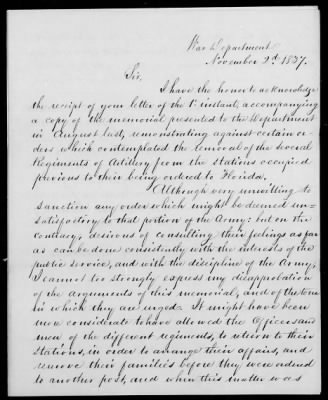 War Department
November 2d 1837.
Sir,
I have the honor to acknowledge
the receipt of your letter of the 1st instant, accompanying
a copy of the memorial presented to the Department
in August last, remonstrating against certain or-
ders which contemplated the removal of the several
Regiments of Artillery from the stations occupied
previous to their being ordered to Florida.
Although very unwilling to
sanction any order which might be deemed un-
satisfactory to that portion of the Army: but on the
contrary, desirous of consulting their feelings as far
as can be done consistently with the interests of the
public service, and with the discipline of the Army,
I cannot too strongly express my disapprobation
of the arguments of this memorial, and of the tone
in which they are urged. It might have been
more considerate to have allowed the Officers and
men of the different regiments, to return to their
Stations, in order to arrange their affairs, and
remove their families before they were ordered
to another post, and when this matter was